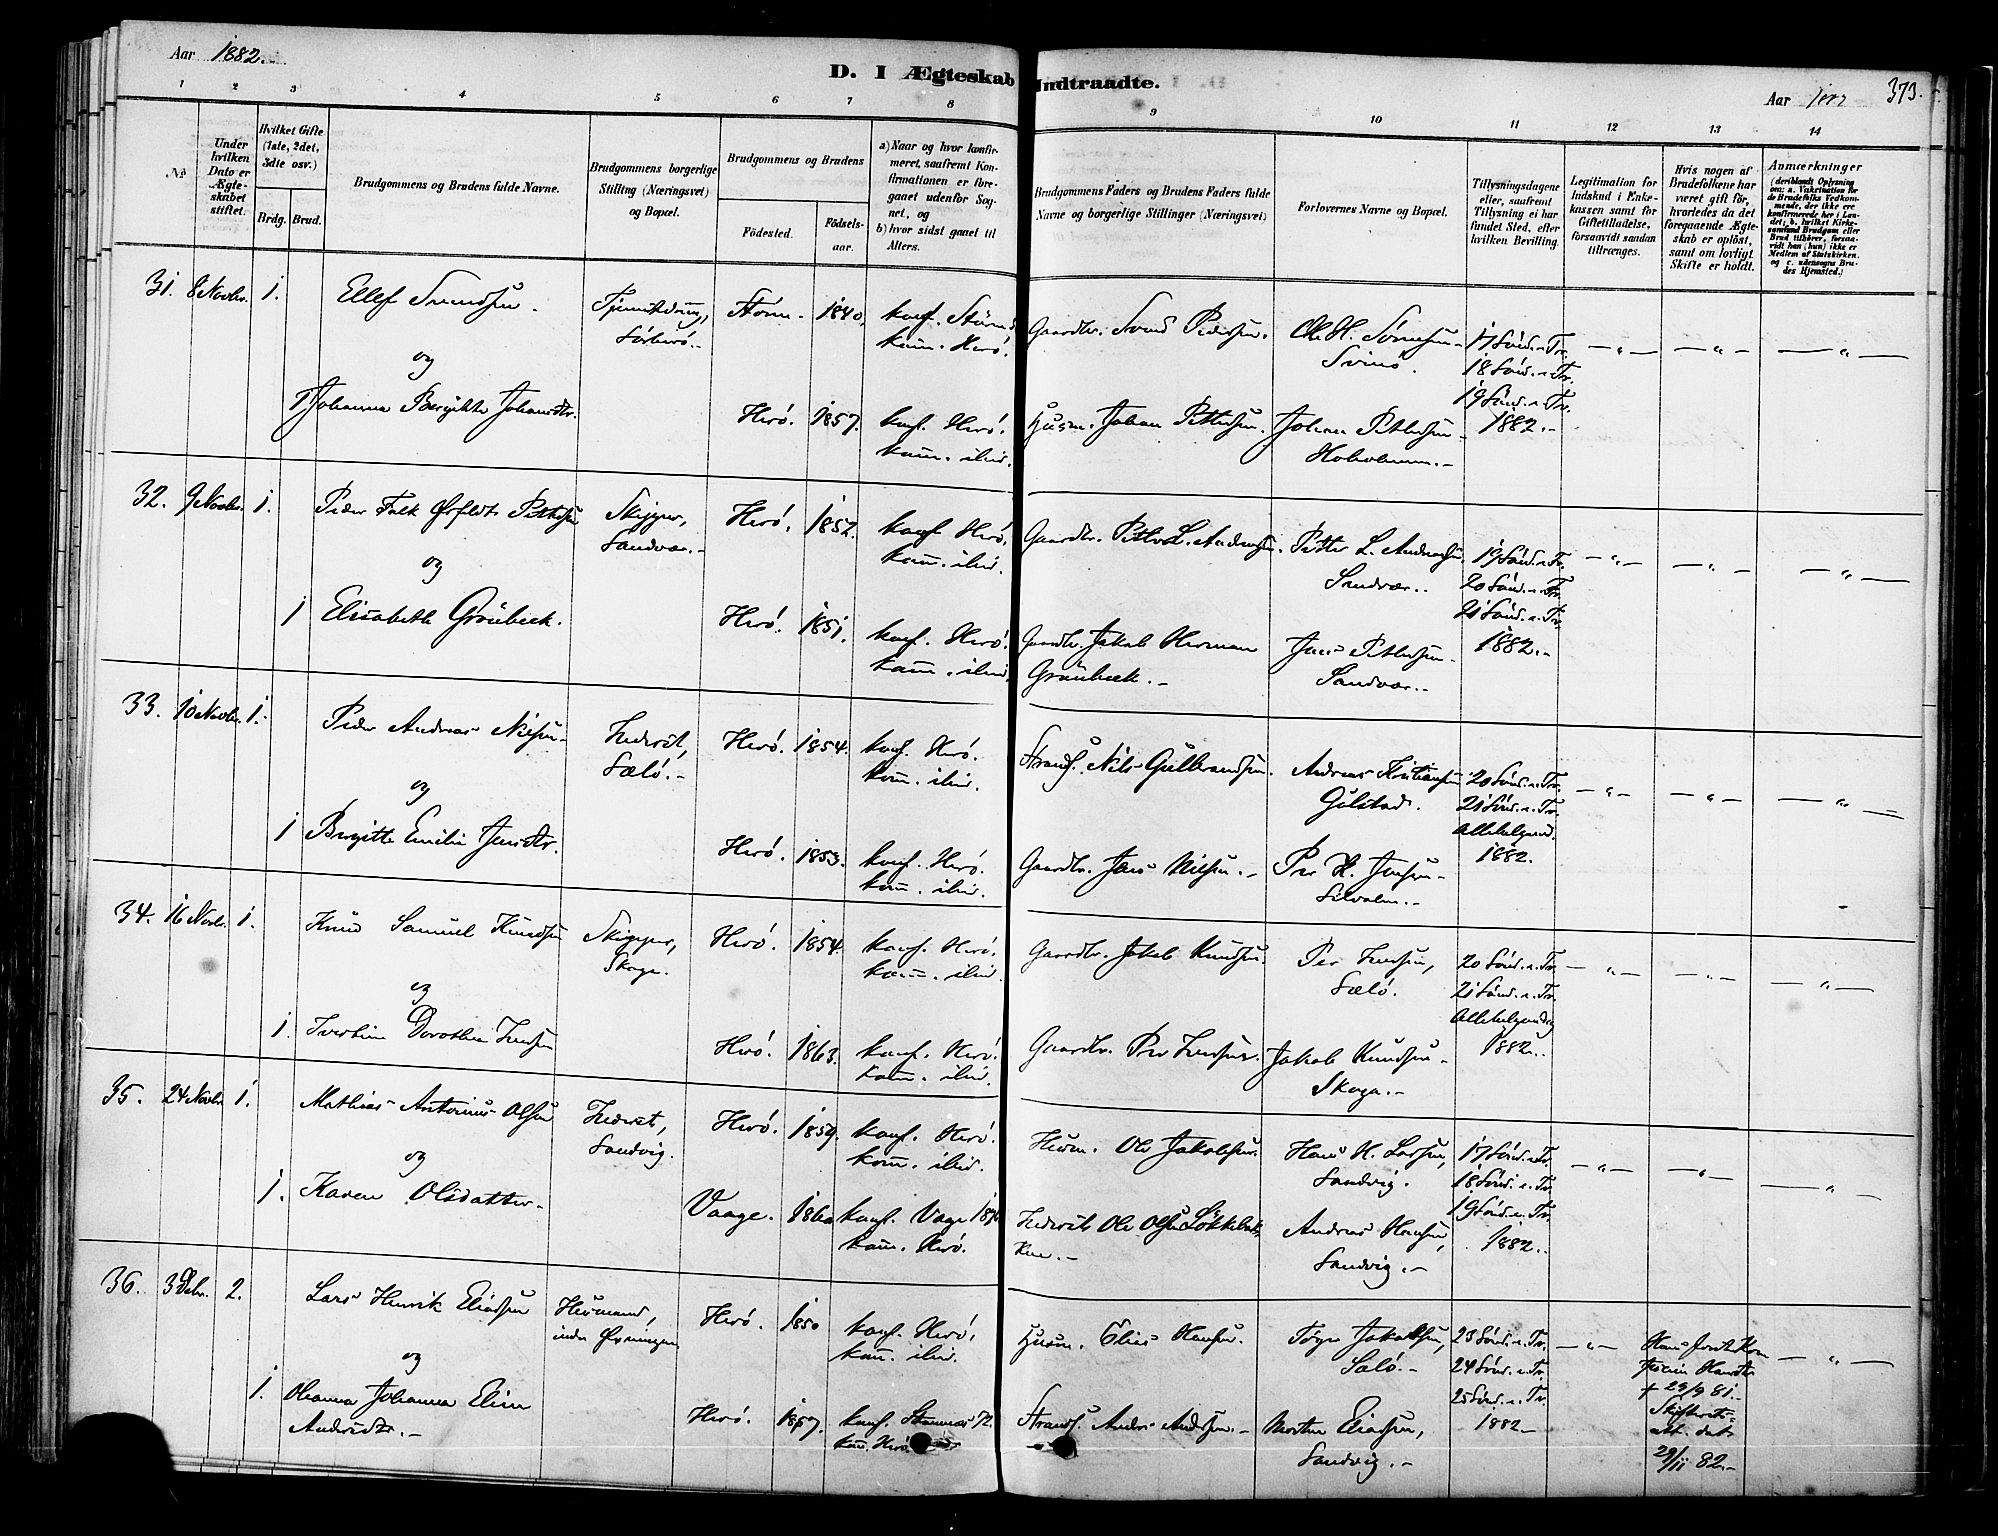 Aar 1882.
D. I Ægteskab Indtraadte.
Aar 1882
373.
1 2 3 4 5 6 7 8 9 10 11 12 13 14
No
Under hvilken Dato er Ægteskabet stiftet.
Hvilket Gifte (1ste, 2det, 3dte osv.)
Brdg. Brud.
Brudgommens og Brudens fulde Navne.
Brudgommens borgerlige Stilling (Næringsvei) og Bopæl.
Brudgommens og Brudens
Fødested.
Fødselsaar.
a) Naar og hvor konfirmeret, saafremt Konfirmationen er foregaaet udenfor Sognet, og
b) hvor sidst gaaet til Alters.
Brudgommens Faders og Brudens Faders fulde Navne og borgerlige Stillinger (Næringsvei)
Forlovernes Navne og Bopæl.
Tillysningsdagene eller, saafremt Tillysning ei har fundet Sted, efter hvilken Bevilling.
Legitimation for Indskud i Enkekassen samt for Giftetilladelse, forsaavidt saadan tiltrænges.
Hvis nogen af Brudefolkene har været gift før, hvorledes da det foregaaende Ægteskab er opløst, samt om lovligt Skifte er holdt.
Anmærkninger
(deriblandt Oplysning om: a. Vakcination for de Brudefolks Vedkommende, der ikke ere konfirmerede her i Landet; b. hvilket Kirkesamfund Brudgom eller Brud tilhører, forsaavidt han (hun) ikke er Medlem af Statskirken, og c. udensogns Brudes Hjemsted.)
31. 8 Novbr. 1. Ellef Svendsen. Tjenestedreng, Sørherø. Størn. 1840. konf. Størn kom. Herø. Gaardbr. Svend Pedersen. Ole H. Sørensen Svinø. 17 Sönd. e. Tr. 18 Sönd. e. Tr. 19 Sönd. e. Tr. 1882.
og
1 Johanna Bergitte Johansdtr. Herø. 1857. konf. Herø. kom. ibid. Husm. Johan Pettersen. Johan Pettersen
32. 9 Novbr. 1. Peder Falk Pettersen Skipper, Sandvær. Herø. 1852. konf Herø. kom. ibid. Gaardbr. Petter L. Andersen. Petter L. Andersen Sandvær. 19 Sönd. e. Tr. 20 Sönd. e. Tr. 21 Sönd. e. Tr. 1882.
og
1 Elisabeth Grönbeck. Herø. 1851. konf. Herø. kom. ibid. Gaardbr. Jakob Herman Grönbeck. Jens Pettersen Sandvær.
33. 10 Novbr. 1. Peder Andreas Nilsen Inderst, Sælø. Herø. 1854. konf. Herø. kom. ibid. Strands. Nils Gulbrandsen. Andreas Kristiansen Gulstad. 20 Sönd. e. Tr. 21 Sönd. e. Tr. Allehelgensd. 1882.
og
1 Bergitte Emilie Jensdtr. Herø. 1853. konf. Herø. kom. ibid. Gaardbr. Jens Nilsen. Per H. Jensen Silvalen.
34. 16 Novbr. 1. Knud Samuel Knudsen Skipper, Skoga. Herø. 1854. konf. Herø. kom. ibid. Gaardbr. Jakob Knudsen. Per Jensen, Sælø. 20 Sönd. e. Tr. 21 Sönd. e. Tr. Allehelgensdg 1882.
og
1. Dorothea Jensen Herø. 1863. konf. Herø. kom. ibid. Gaardbr. Per Jensen. Jakob Knudsen Skoga.
35. 24 Novbr 1. Mathias Antonius Olsen Inderst, Sandvig. Herø. 1859. konf. Herø. kom. ibid. Husm. Ole Jakobsen. Hans H. Larsen, Sandvig. 17 Sönd. e. Tr. 18 Sönd. e. Tr. 19 Sönd. e. Tr. 1882.
og
1. Karen Olsdatter. Vaage. 1860. konf. Vaage kom. Herø. Inderst Ole Olsen Løkkebakken. Andreas Hansen, Sandvig.
36. 3 Debr. 2. Lars Henrik Eliassen Husmand, indre Øxningen Herø. 1850 konf. Herø. kom. ibid. Husm. Elias Hansen. Jakobsen, Sælø. 23 Sönd. e. Tr. 24 Sönd. e. Tr. 25 Sönd. e. Tr. 1882 Hansdtr + 29/9 81. Skifterets- Att. dat 29/11 82.
og
1. Oleanna Johanna Eline Andersdtr. Herø. 1857. konf. Stamnæs 72. kom. Herø Strands. Anders Andersen. Morten Eliassen, Sandvig.